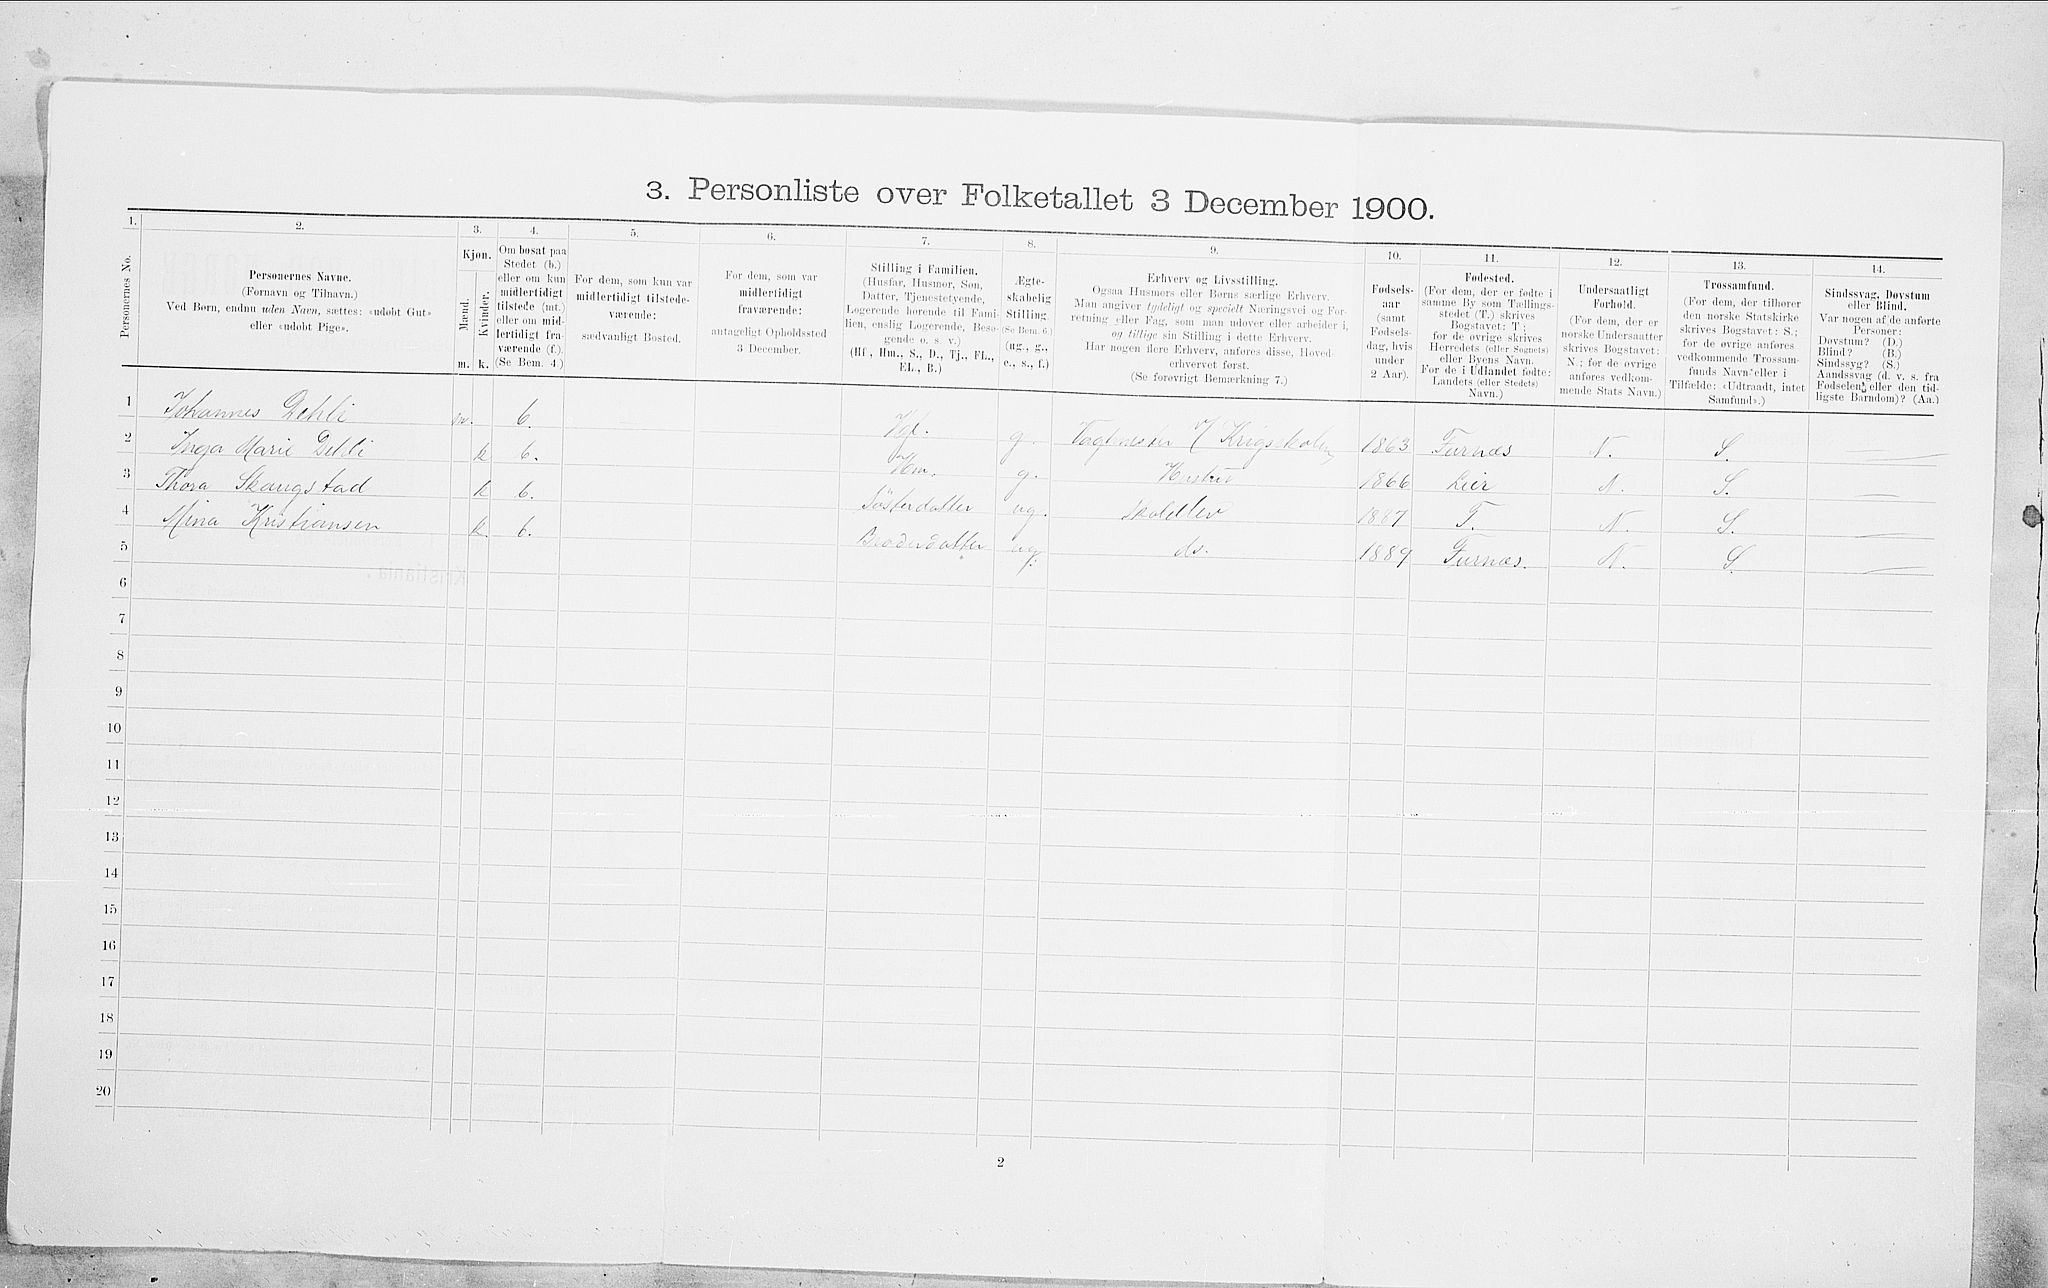 3. Personliste over Folketallet 3 December 1900.
1. 2. 3. 4. 5. 6. 7. 8. 9. 10. 11. 12. 13. 14.
Personernes No.
Personernes Navne.
(Fornavn og Tilnavn.)
Ved Børn, endnu uden Navn, sættes: «udobt Gut»
eller «udobt Pige».
Kjøn.
Mænd.
Kvinder.
m. k.
Om bosat paa
Stedet (b.)
eller om kun
midlertidigt
tilstede (mt.)
eller om mid-
lertidigt fra-
værende (f.)
(Se Bem. 4.)
For dem, som kun var
midlertidigt tilstede-
værende:
sædvanligt Bosted.
For dem, som var
midlertidigt
fraværende:
antageligt Opholdssted
3 December.
Stilling i Familien.
(Husfar, Husmor, Søn,
Datter, Tjenestetyende,
Logerende hørende til Fami-
lien, enslig Logerende, Besø-
gende o. s. v.)
(Hf., Hm., S., D., Tj., FL.,
EL., B.)
Ægte-
skabelig
Stilling.
(Se Bem. 6.)
(ug., g.,
e., s., f.)
Erhverv og Livsstilling.
Ogsaa Husmors eller Børns særlige Erhverv.
Man angiver tydeligt og specielt Næringsvei og For-
retning eller Fag, som man udover eller arbeider i,
og tillige sin Stilling i dette Erhverv.
Har nogen flere Erhverv, anføres disse, Hoved-
erhvervet først.
(Se forøvrigt Bemærkning 7.)
Fødsels-
aar
(samt
Fødsels-
dag, hvis
under
2 Aar).
Fødested.
(For dem, der er fødte i
samme By som Tællings-
stedet (T.) skrives
Bogstavet: T;
for de øvrige skrives
Herredets (eller Sognets)
eller Byens Navn.
For de i Udlandet fødte:
Landets (eller Stedets)
Navn.)
Undersaatligt
Forhold.
(For dem, der er
norske Undersaatter
skrives Bogstavet:
N.; for de øvrige
anføres vedkom-
mende Stats Navn.)
Trossamfund.
(For dem, der tilhører
den norske Statskirke
skrives Bogstavet: S.;
for de øvrige anføres
vedkommende Trossam-
funds Navn eller i
Tilfælde: «Udtraadt, intet
Samfund».)
Sindssvag, Døvstum
eller Blind.
Var nogen af de anførte
Personer:
Døvstum? (D.)
Blind? (B.)
Sindssyg? (S.)
Aandssvag (d. v. s. fra
Fødselen eller den tid-
ligste Barndom)? (Aa.)
1 Johannes Dehli m. b. Hf. g. Vagtmester v/ Krigsskolen 1863 Furnæs N. S. —
2 Inga Marie Dehli k b. Hm. g. Hustru 1866 Lier N. S. —
3 Thora Skaugstad k b. Søsterdatter ug. Skoleelev T. N. S. —
4 Mina Kristiansen k. b. Broderdatter ug. do. 1889 Furnæs. N. S. —
5
6
7
8
9
10
11
12
13
14
15
16
17
18
19
20
2